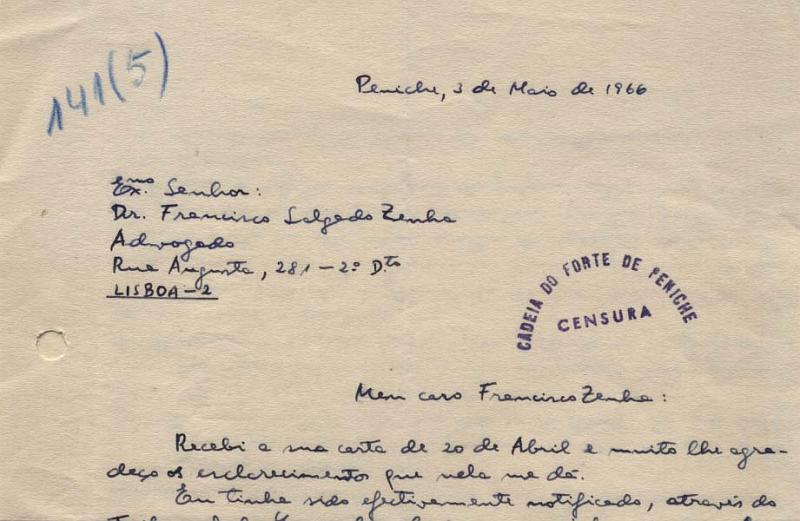 141(5)
Peniche, 3 de Maio de 1966
Exmo. Senhor:
Dr. Francisco Salgado Zenha
Advogado
Rua Augusta, 281-2º D.to
LISBOA-2
CADEIA DO FORTE DE PENICHE
CENSURA
Meu caro Francisco Zenha:
Recebi a sua carta de 20 de Abril e muito lhe agra-
deço os esclarecimentos que nela me dá.
Eu tinha sido efectivamente notificado, através do